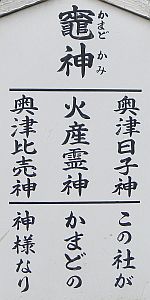 竈神
かまど かみ
奥津日子神
火産霊神
奥津比売神
この社が
かまどの
神様なり